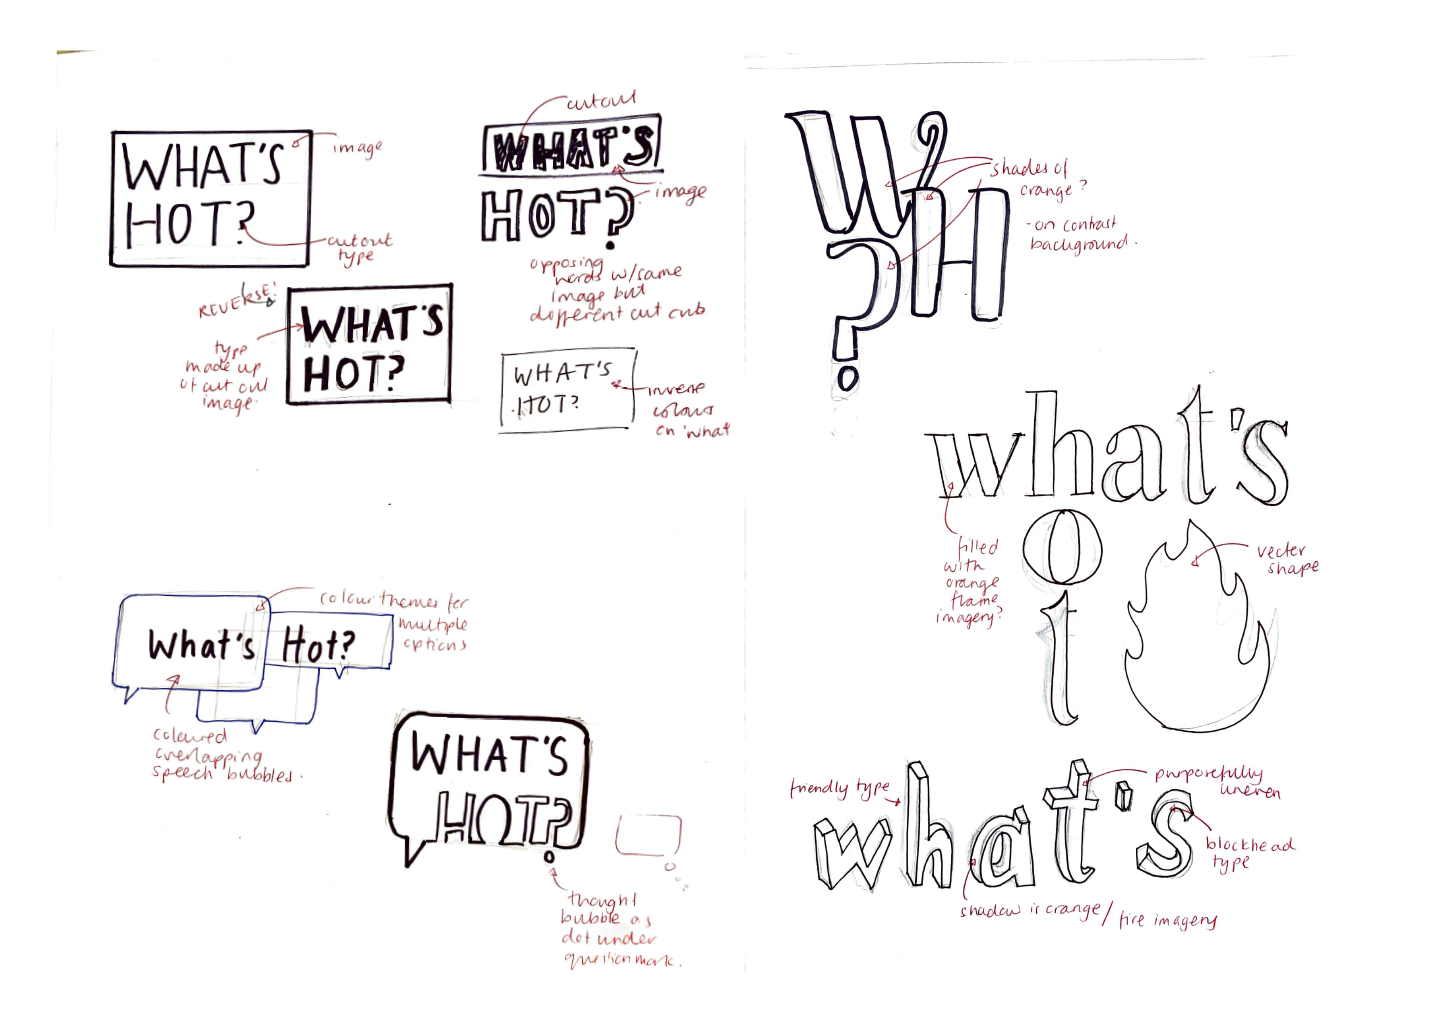 WHAT'S
HOT?
image
cutout
type
REVERSE!
type
made up
of cut out
image.
WHAT'S
HOT?
cutout
WHAT'S
HOT?
image
opposing
words w/same
image but
different cut
WHAT'S
HOT?
inverse
colours
on 'what'
What's Hot?
colour themes for
multiple
options
coloured
overlapping
speech bubbles.
WHAT'S
HOT?
thought
bubble as
dot under
question mark.
W
H
?
shades of
orange?
- on contrast
background.
what's
o
t
filled
with
orange
flame
imagery?
vector
shape
what's
friendly type
purposefully
uneven
blockhead
type
shadow is orange / fire imagery